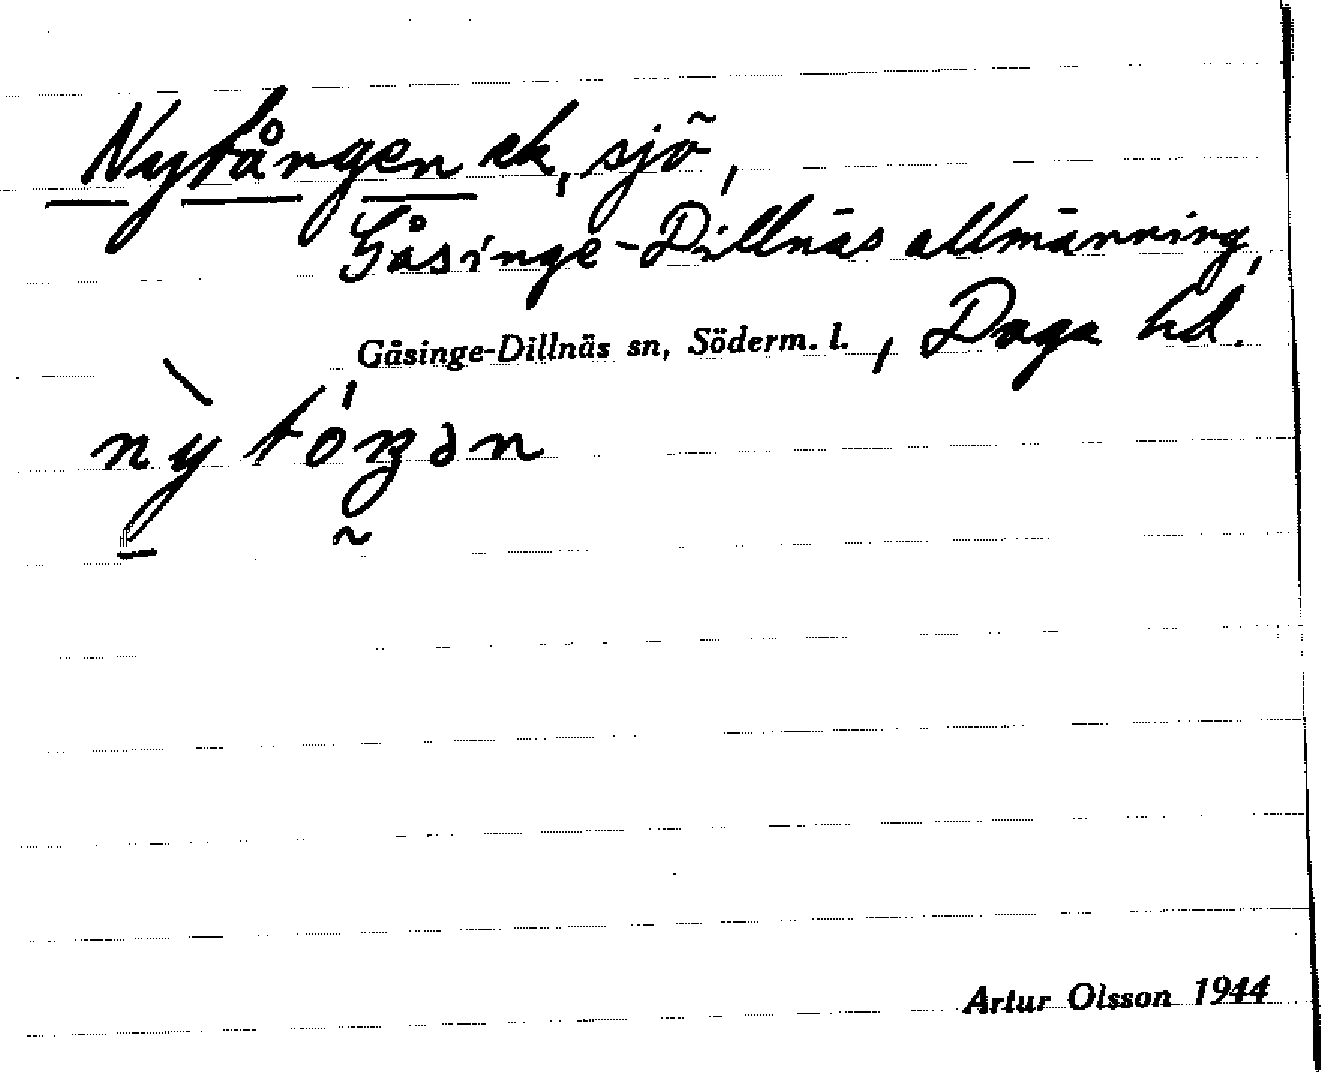 Nytången ek, sjö,
Gåsinge-Dillnäs allmänning,
Gåsinge-Dillnäs sn, Söderm. l., Daga hd.
nỳtóŋən
Artur Olsson 1944